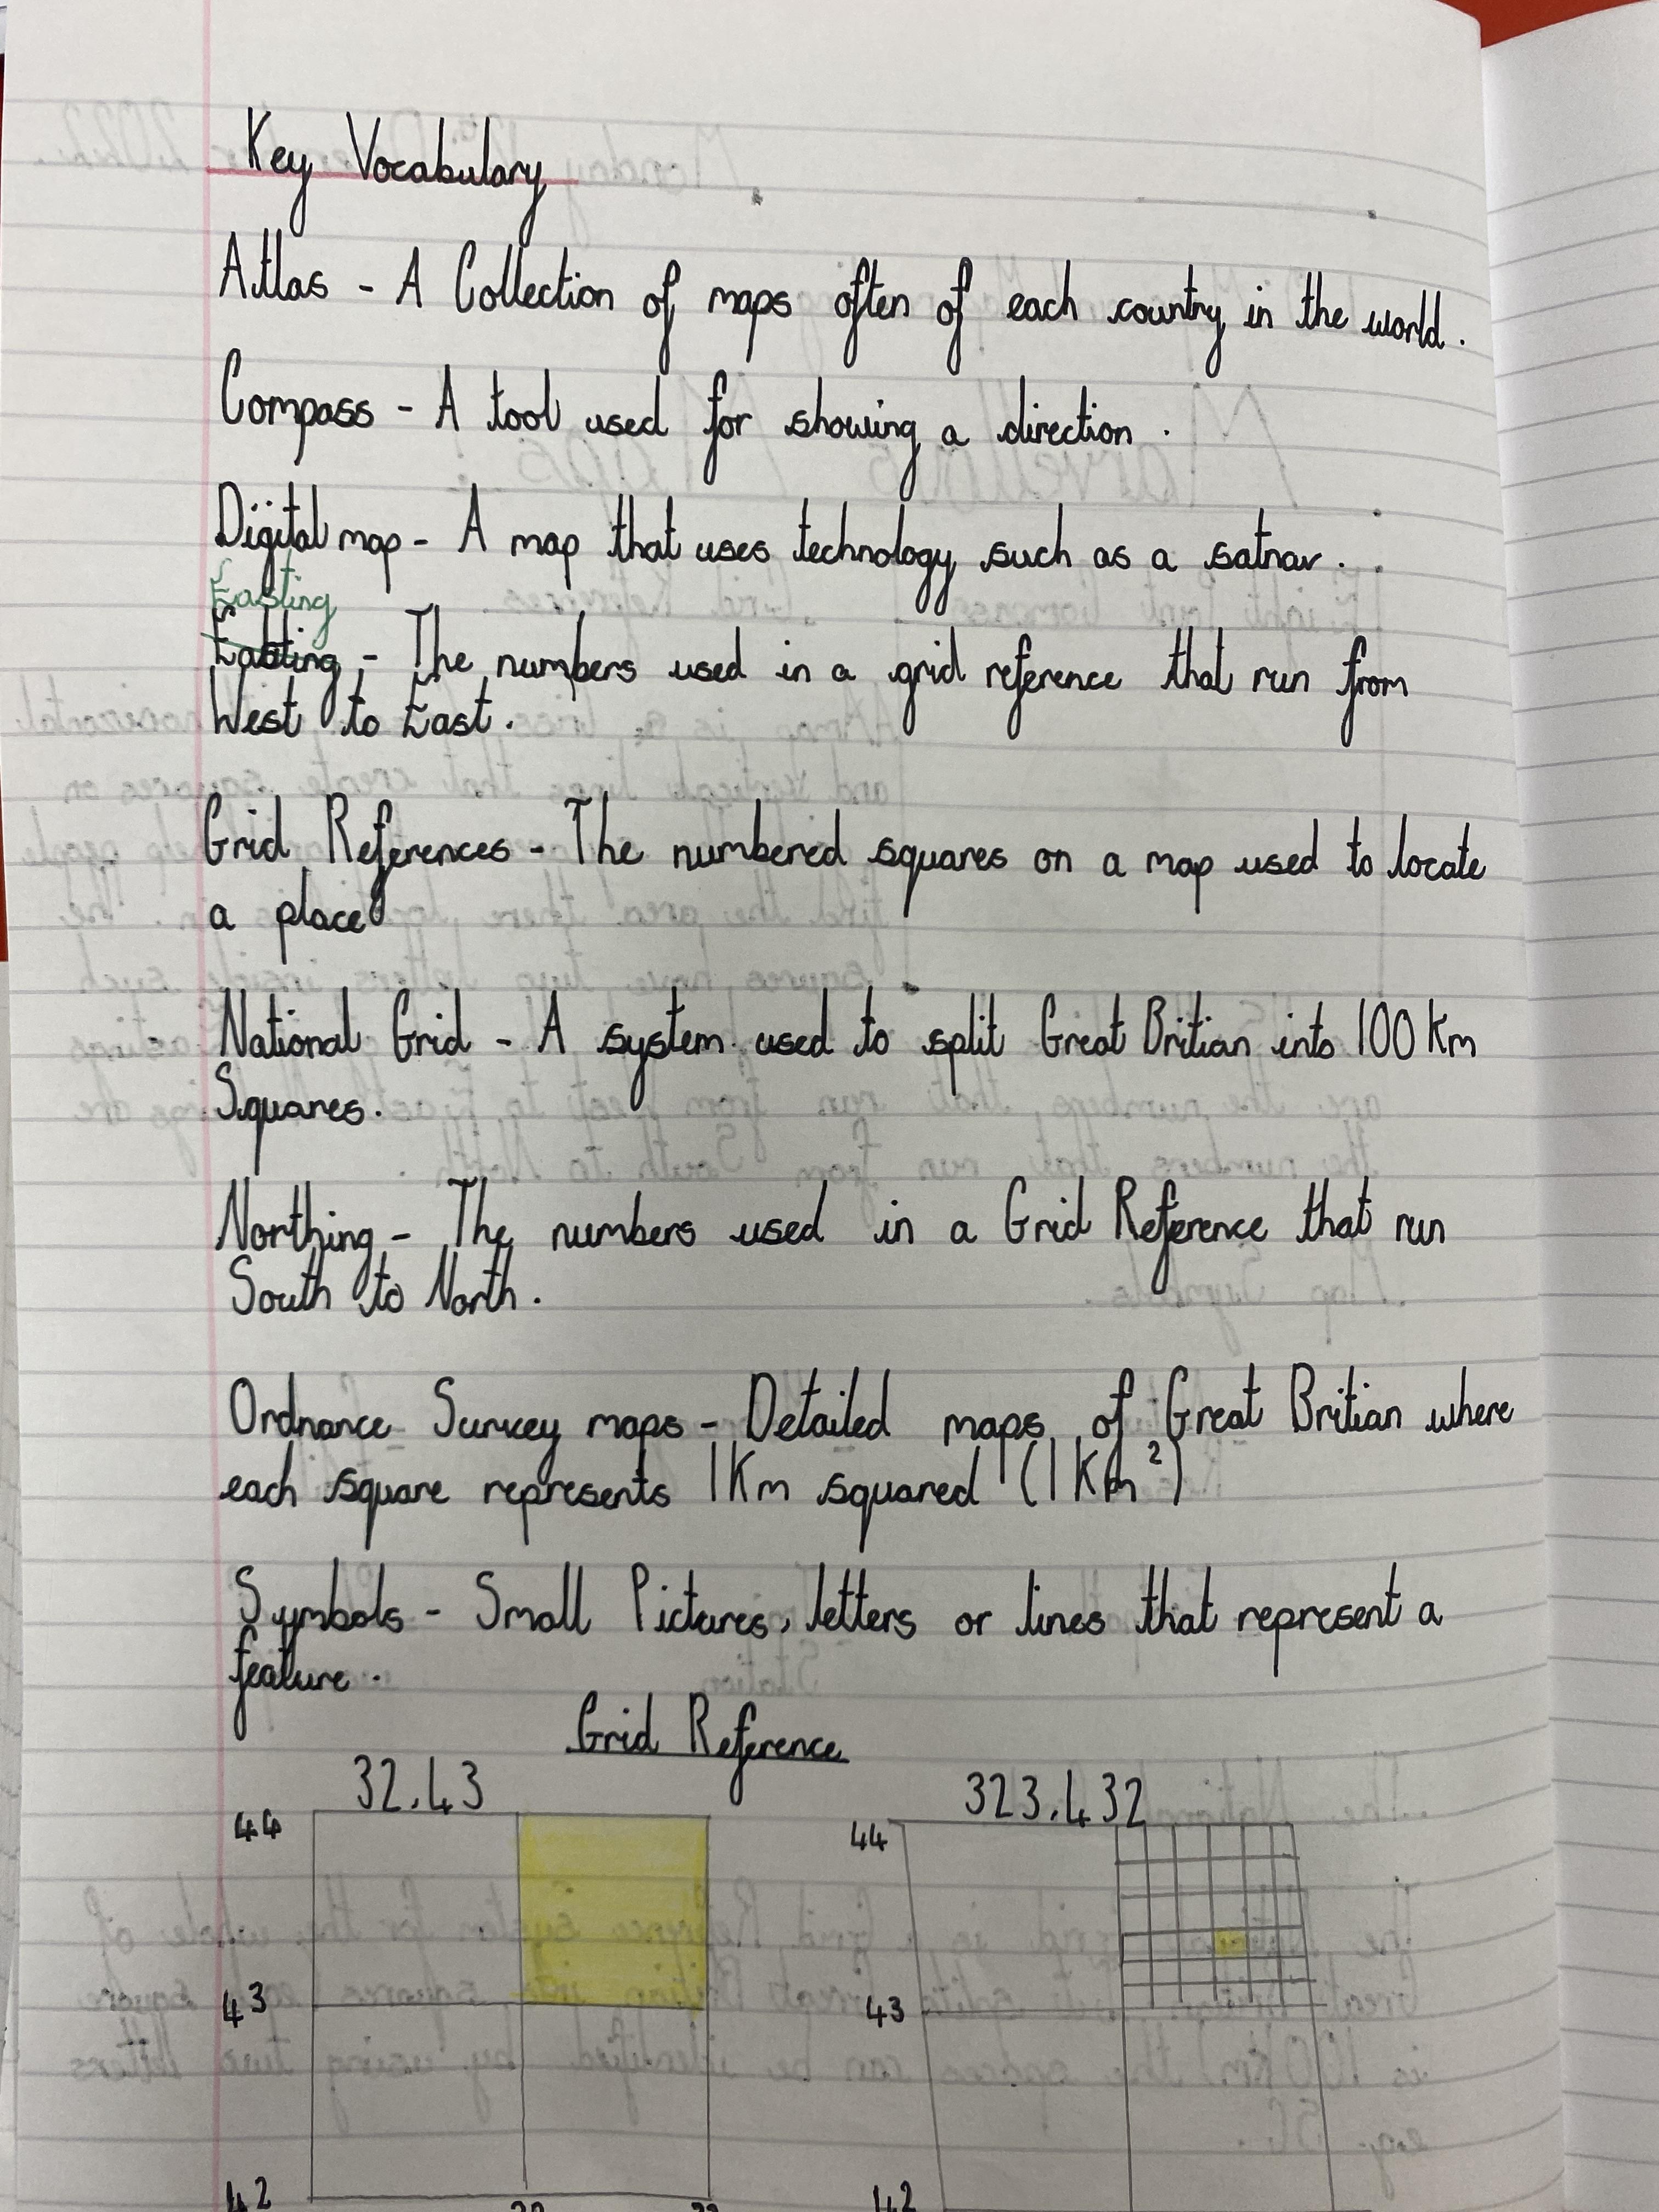 Key Vocabulary
Atlas - A Collection of maps often of each country in the world.
Compass - A tool used for showing a direction.
Digital map - A map that uses technology such as a satnav.
Easting
Eabting - The numbers used in a grid reference that run from
West to East.
Grid References - The numbered squares on a map used to locate
a place
National Grid - A system used to split Great Britian into 100 Km
Squares.
Northing - The numbers used in a Grid Reference that run
South to North.
Ordnance Survey maps - Detailed maps of Great Britian where
each square represents 1Km squared (1 Km²)
Symbols - Small Pictures, letters or lines that represent a
feature.
Grid Reference
32,43 323,432
44 44
43 43
42 42